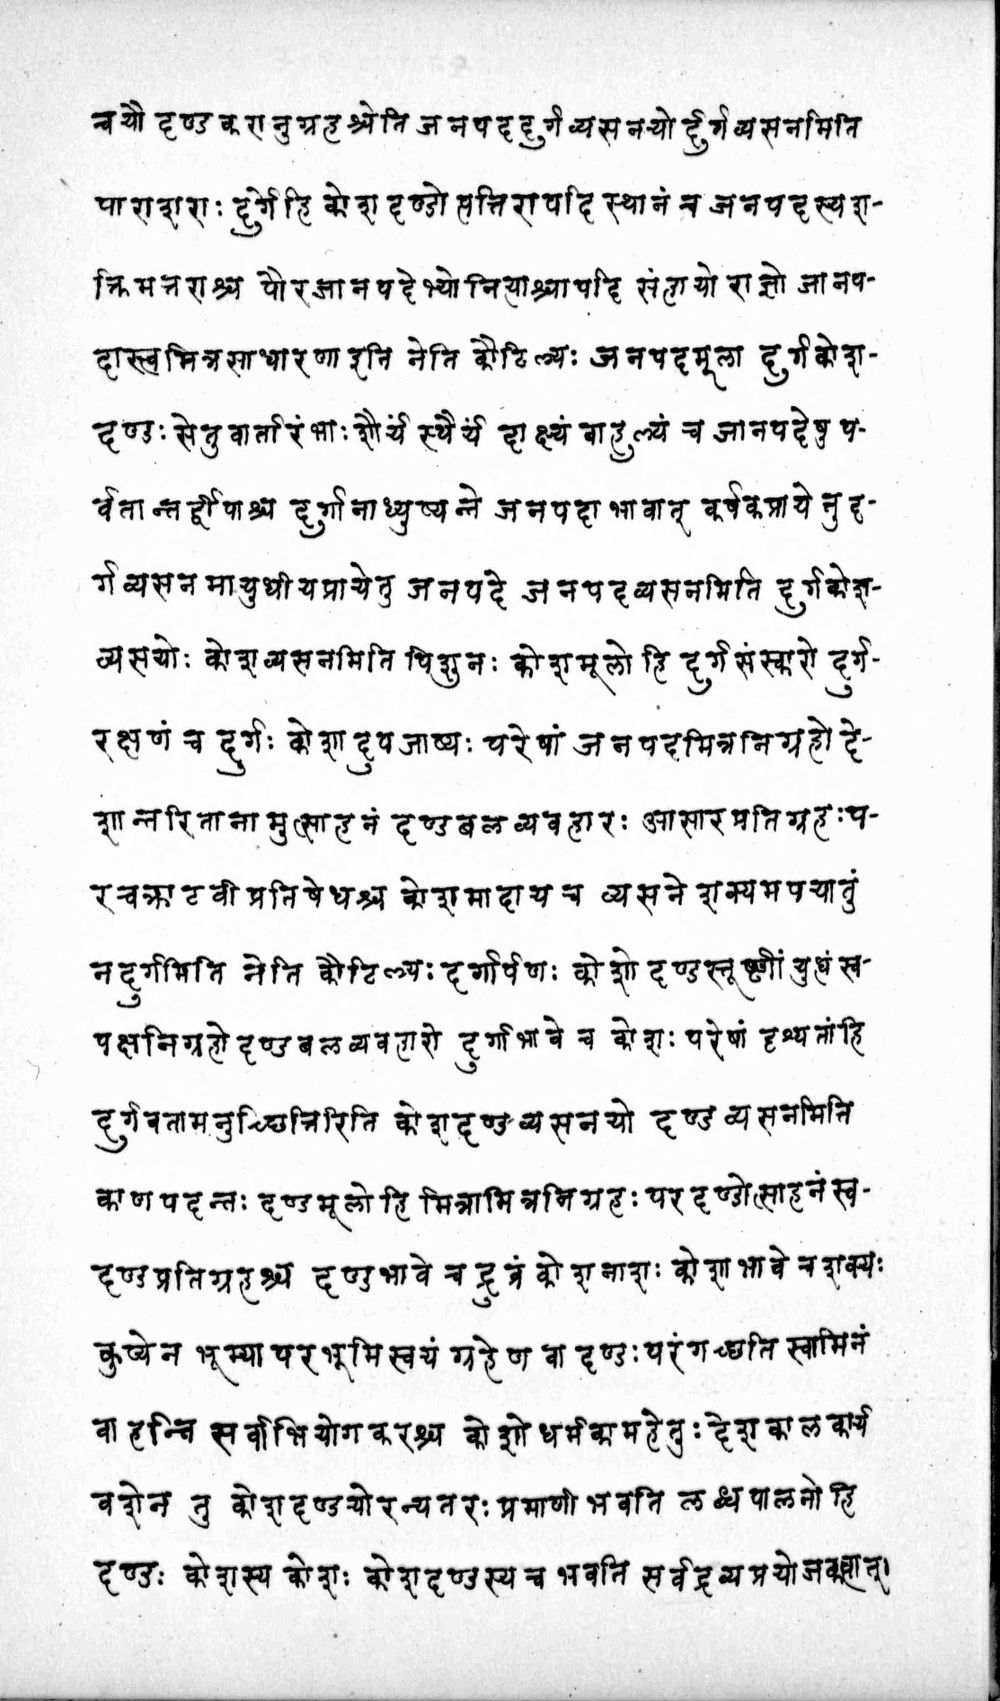 चयौ दण्डकरानुग्रहश्चेति जनपददुर्गव्यसनयोर्दुर्गव्यसनमिति
पाराशराः दुर्गे हि कोशदण्डोत्पत्तिरापदि स्थानं च जनपदस्य श-
क्तिमत्तराश्च पौरजानपदेभ्यो नित्याश्चापदि सहायो राज्ञो जानप-
दास्त्वमित्रसाधारणा इति नेति कौटिल्यः जनपदमूला दुर्गकोश-
दण्डः सेतुवार्तारंभाः शौर्यं स्थैर्यं दाक्ष्यं बाहुल्यं च जानपदेषु प-
र्वतान्तर्द्वीपाश्च दुर्गानाध्युष्यन्ते जनपदाभावात् कर्षकप्राये तु दु-
र्गव्यसनमायुधीयप्राये तु जनपदे जनपदव्यसनमिति दुर्गकोश-
व्यसयोः कोशव्यसनमिति पिशुनः कोशमूलो हि दुर्गसंस्कारो दुर्ग-
रक्षणं च दुर्गः कोशादुपजाप्यः परेषां जनपदमित्रनिग्रहो दे-
शान्तरितानामुत्साहनं दण्डबलव्यवहारः आसारप्रतिग्रहः प-
रचक्राटवीप्रतिषेधश्च कोशमादाय च व्यसने शक्यमपयातुं
न दुर्गमिति नेति कौटिल्यः दर्गार्पणः कोशो दण्डस्तूष्णीं युधं स्व-
पक्षनिग्रहो दण्डबलव्यवहारो दुर्गाभावे च कोशः परेषां दृश्यतां हि
दुर्गवतामनुच्छित्तिरिति कोशदण्डव्यसनयो दण्डव्यसनमिति
काणपदन्तः दण्डमूलो हि मित्रामित्रनिग्रहः परदण्डोत्साहनं स्व-
दण्डप्रतिग्रहश्च दण्डभावे च द्रुवं कोशनाशः कोशाभावे च शक्यः
कुप्येन भूम्या परभूमिस्वयं ग्रहेण वा दण्डः परं गच्छति स्वामिनं
वा हन्ति सर्वाभियोगकरश्च कोशो धर्मकामहेतुः देशकालकार्य
वशेन तु कोशदण्डयोरन्यतरः प्रमाणीभवति लब्धपालनो हि
दण्डः कोशस्य कोशः कोशदण्डस्य च भवति सर्वद्रव्यप्रयोजकत्वात्।